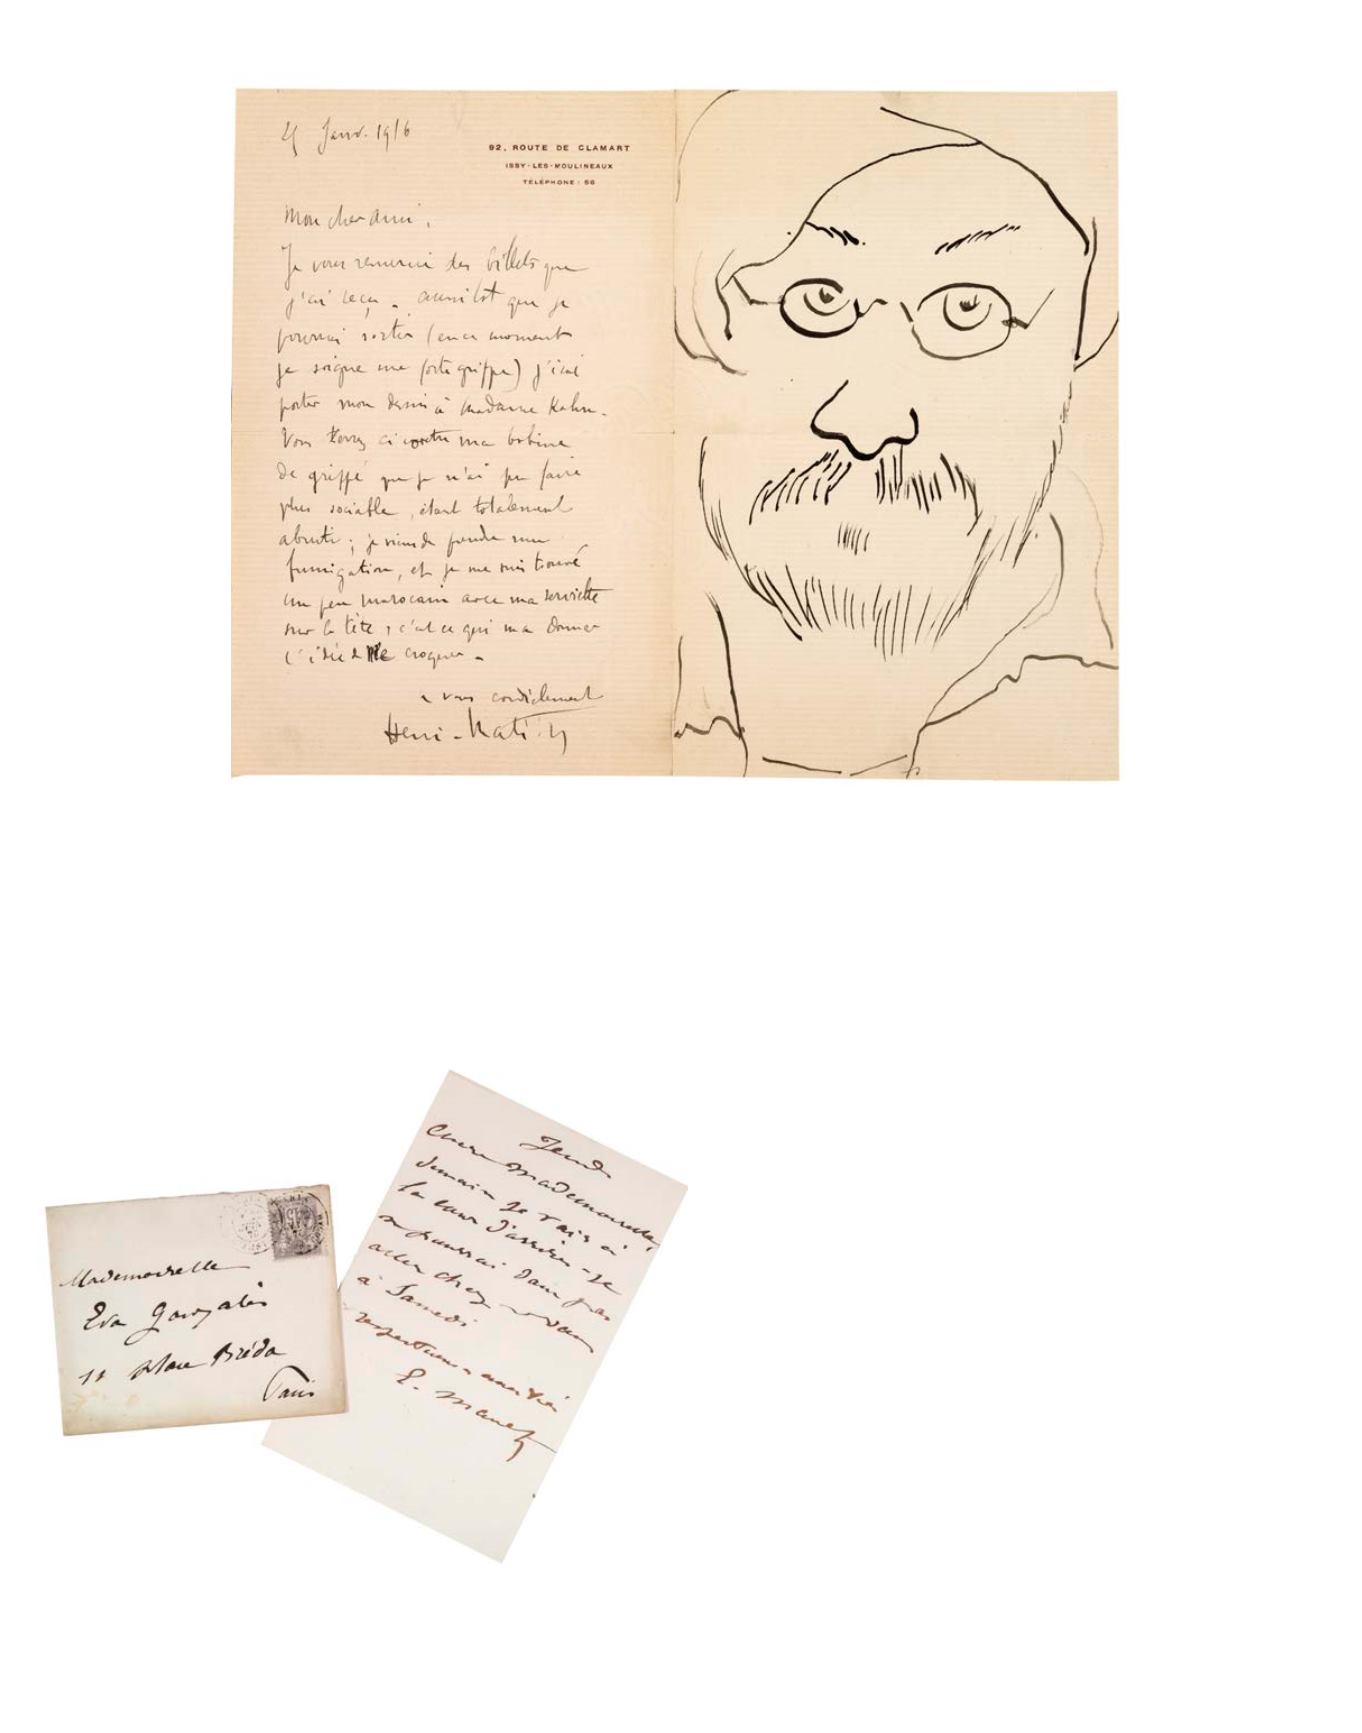 25 Janv. 1916
92, ROUTE DE CLAMART
ISSY-LES-MOULINEAUX
TÉLÉPHONE : 56
Mon cher ami,
Je vous remercie des billets que
j'ai reçu. aussitot que je
pourrai sortir (en ce moment
je soigne une forte grippe) j'irai
porter mon dessin à Madame Kahn.
Vous verrez ci contre ma bobine
de grippé que je n'ai pu faire
plus sociable, étant totalement
abruti ; je viens de prendre une
fumigation, et je me suis trouvé
un peu marocain avec ma serviette
sur la tête, c'est ce qui m'a donné
l'idée de me croquer.
à vous cordialement
Henri-Matisse
Jeudi
Chere Mademoiselle,
demain je vais à
la cour d'assises - je
ne pourrai donc pas
aller chez vous
à Samedi
E. Manet
Mademoiselle
Eva Gonzalès
11 place Bréda
Paris